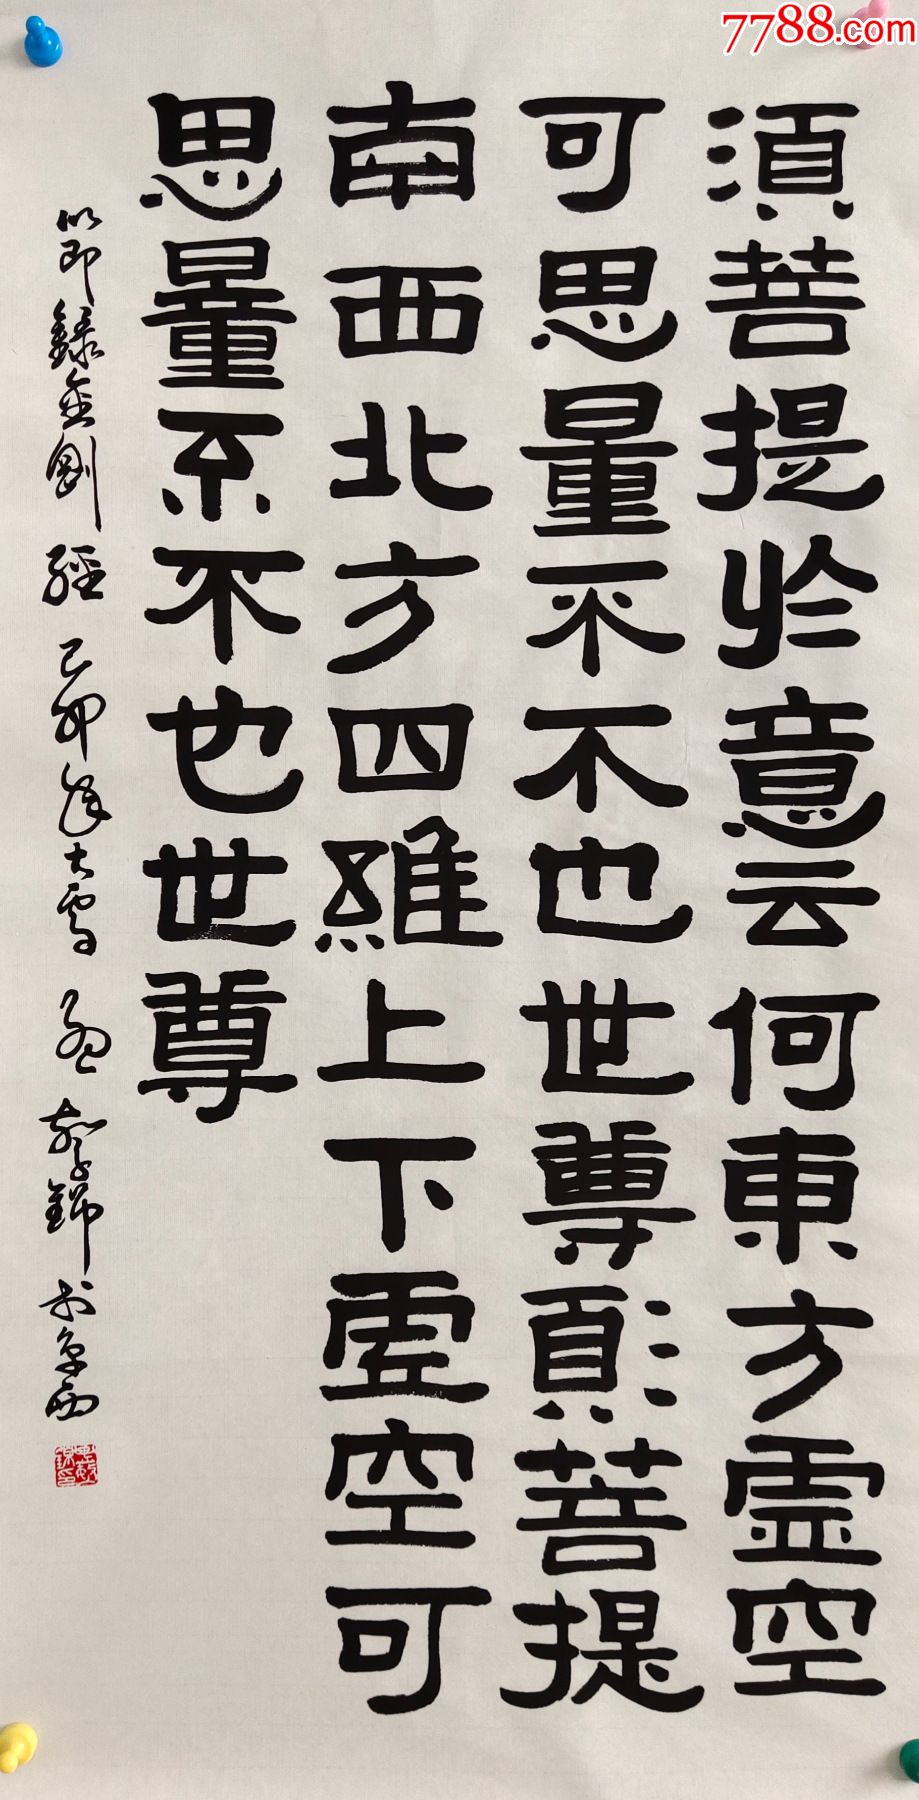 湏菩提於意云何東方虛空
可思量不不也世尊須菩提
南西北方四維上下虛空可
思量不不也世尊
錄金剛經 己卯年大雪 錦於京西
7788.com